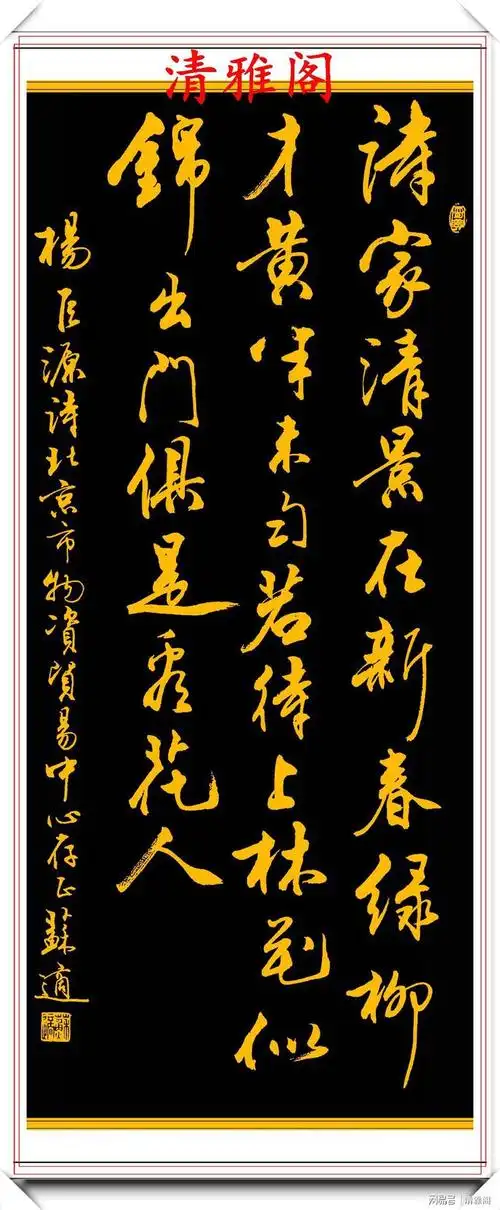 清雅阁
詩家清景在新春緑柳
才黄半未匀若待上林花似
錦出門俱是看花人
楊巨源詩北京市物資貿易中心存正蘇適
网易号 | 清雅阁